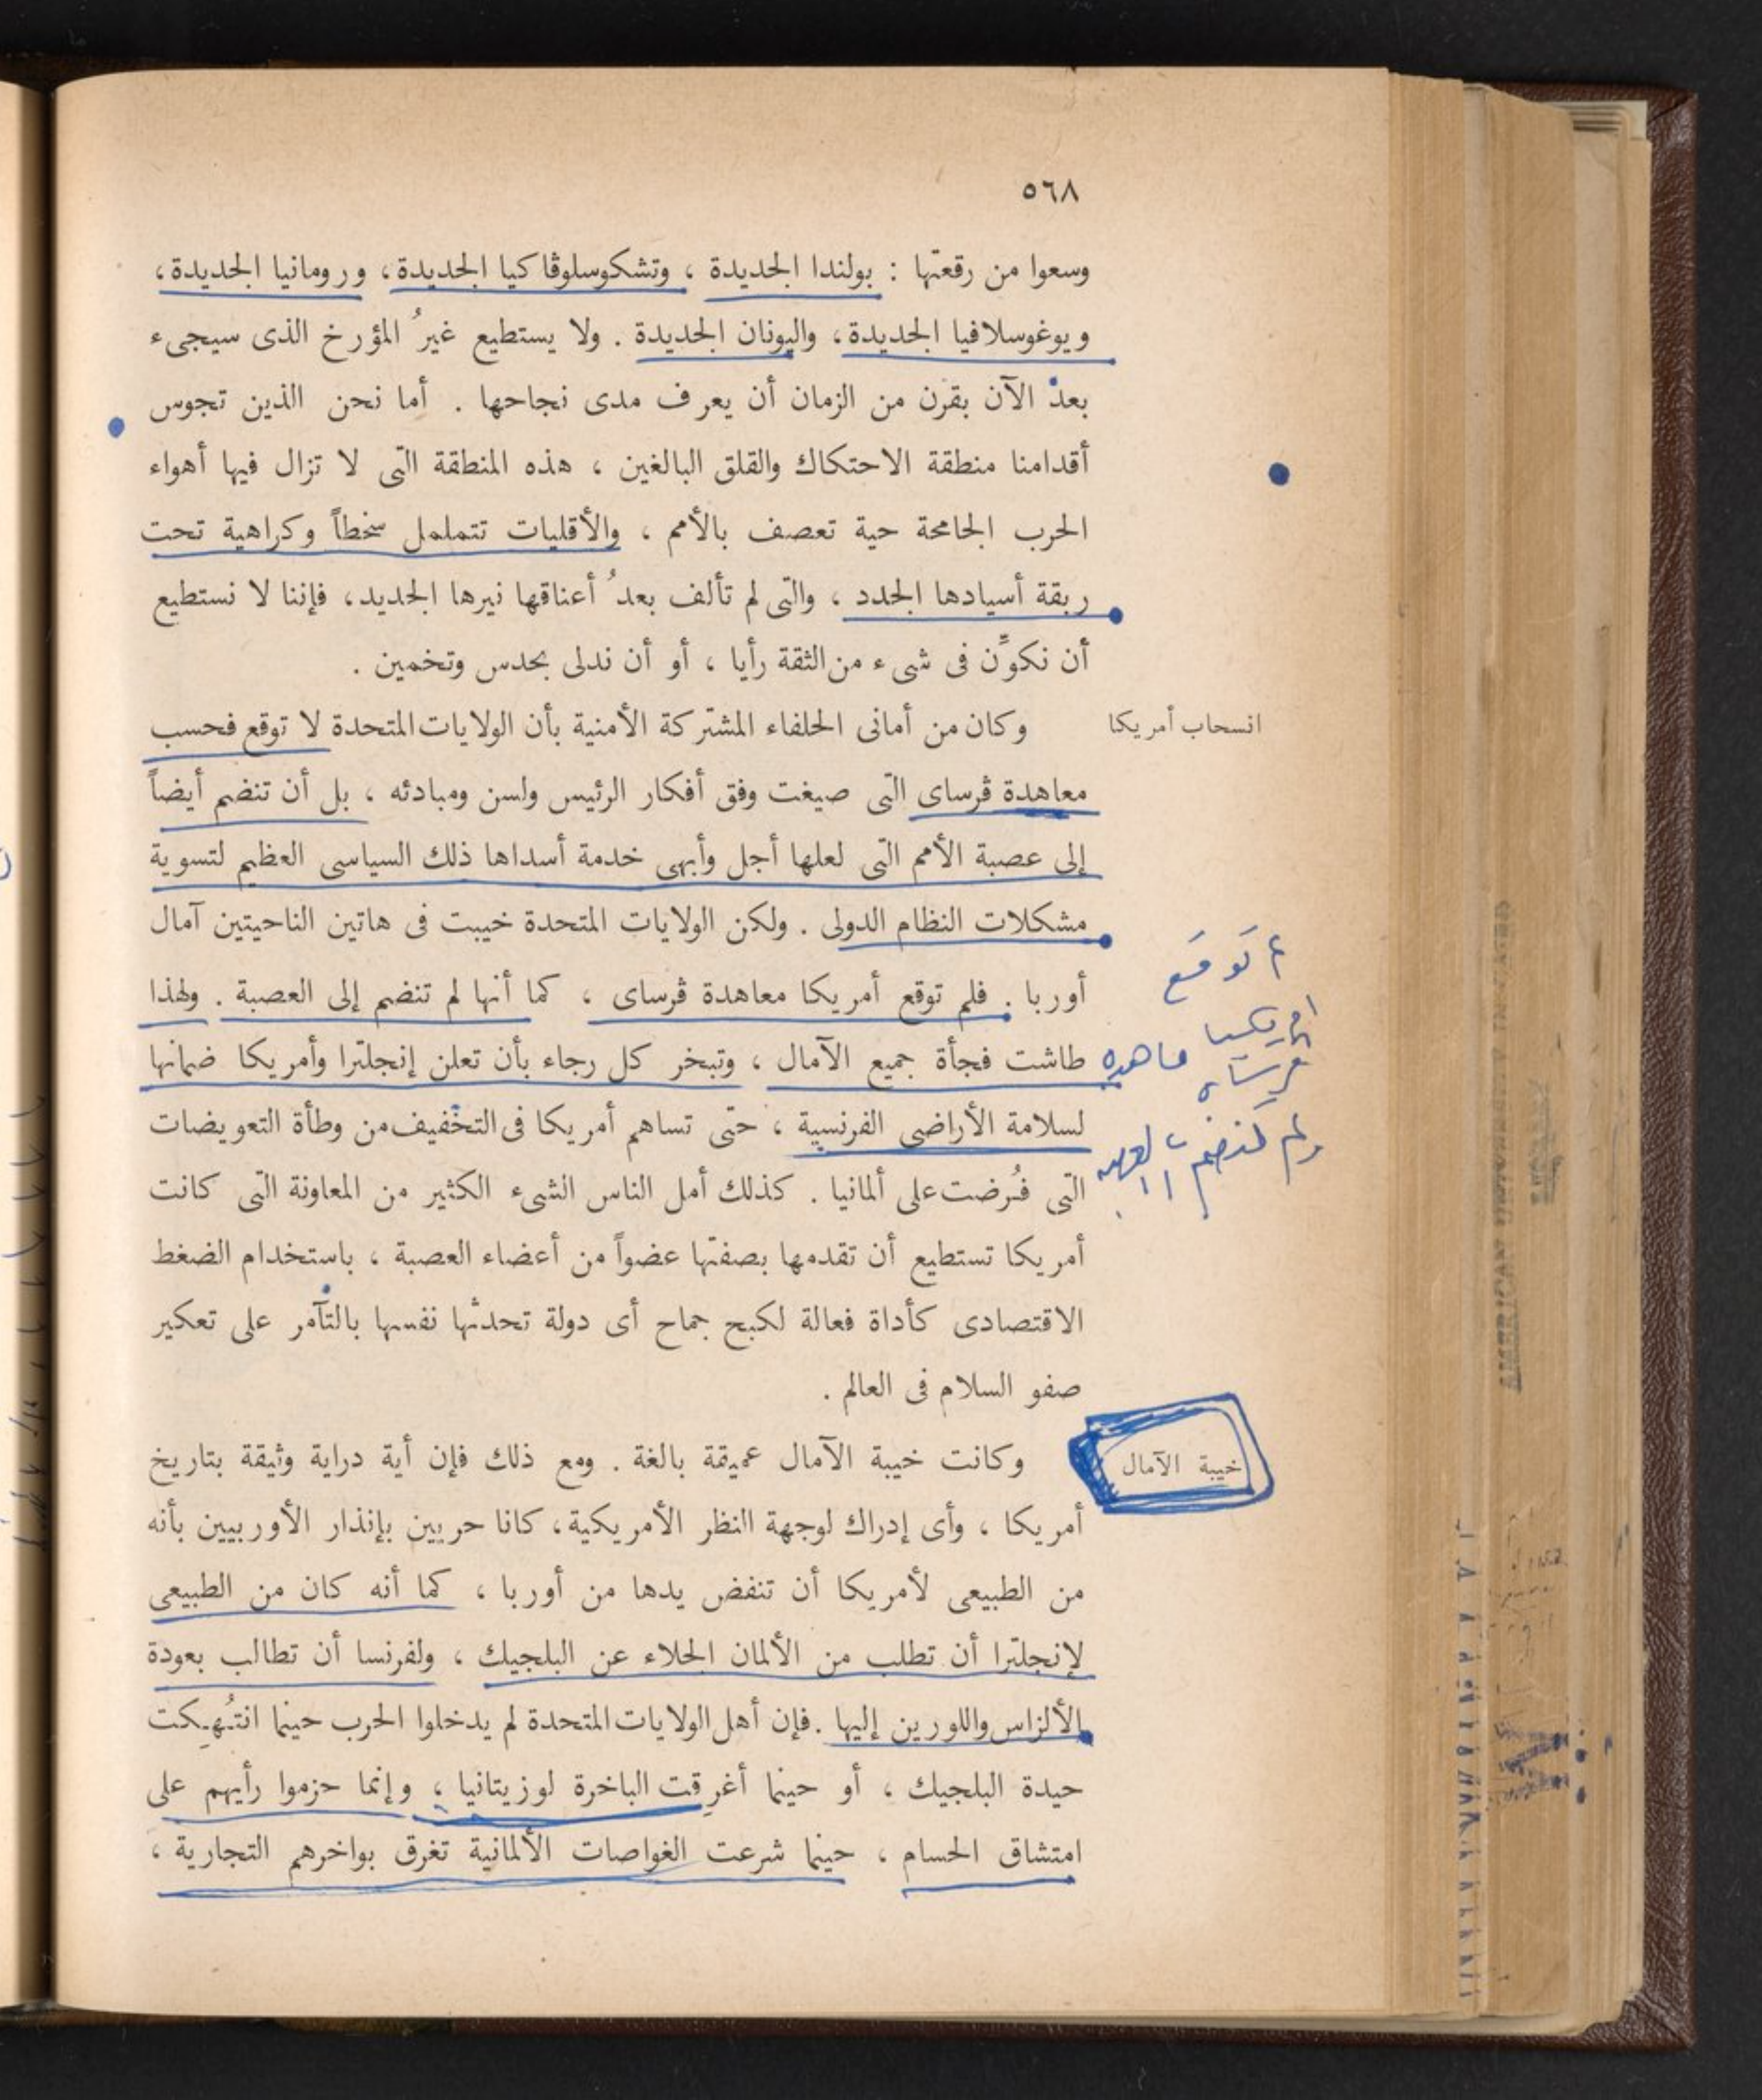 ٥٦٨
وسعوا من رقعتها : بولندا الجديدة ، وتشكوسلوڤاكيا الجديدة ، ورومانيا الجديدة ،
ويوغوسلافيا الجديدة ، واليونان الجديدة . ولا يستطيع غيرُ المؤرخ الذى سيجىء
بعدُ الآن بقرن من الزمان أن يعرف مدى نجاحها . أما نحن الذين تجوس
أقدامنا منطقة الاحتكاك والقلق البالغين ، هذه المنطقة التى لا تزال فيها أهواء
الحرب الجامحة حية تعصف بالأمم ، والأقليات تتململ سخطاً وكراهية تحت
ربقة أسيادها الجدد ، والتى لم تألف بعدُ أعناقها نيرها الجديد ، فإننا لا نستطيع
أن نكوِّن فى شىء من الثقة رأيا ، أو أن ندلى بحدس وتخمين .
انسحاب أمريكا
وكان من أمانى الحلفاء المشتركة الأمنية بأن الولايات المتحدة لا توقع فحسب
معاهدة ڤرساى التى صيغت وفق أفكار الرئيس ولسن ومبادئه ، بل أن تنضم أيضاً
إلى عصبة الأمم التى لعلها أجل وأبهى خدمة أسداها ذلك السياسى العظيم لتسوية
مشكلات النظام الدولى . ولكن الولايات المتحدة خيبت فى هاتين الناحيتين آمال
أوربا . فلم توقع أمريكا معاهدة ڤرساى ، كما أنها لم تنضم إلى العصبة . ولهذا
طاشت فجأة جميع الآمال ، وتبخر كل رجاء بأن تعلن إنجلترا وأمريكا ضمانها
لسلامة الأراضى الفرنسية ، حتى تساهم أمريكا فى التخفيف من وطأة التعويضات
التى فُرضت على ألمانيا . كذلك أمل الناس الشىء الكثير من المعاونة التى كانت
أمريكا تستطيع أن تقدمها بصفتها عضواً من أعضاء العصبة ، باستخدام الضغط
الاقتصادى كأداة فعالة لكبح جماح أى دولة تحدثها نفسها بالتآمر على تعكير
صفو السلام فى العالم .
خيبة الآمال
وكانت خيبة الآمال عميقة بالغة . ومع ذلك فإن أية دراية وثيقة بتاريخ
أمريكا ، وأى إدراك لوجهة النظر الأمريكية ، كانا حريين بإنذار الأوربيين بأنه
من الطبيعى لأمريكا أن تنفض يدها من أوربا ، كما أنه كان من الطبيعى
لإنجلترا أن تطلب من الألمان الجلاء عن البلجيك ، ولفرنسا أن تطالب بعودة
الألزاس واللورين إليها . فإن أهل الولايات المتحدة لم يدخلوا الحرب حينما انتُهِكت
حيدة البلجيك ، أو حينما أغرِقت الباخرة لوزيتانيا ، وإنما حزموا رأيهم على
امتشاق الحسام ، حينما شرعت الغواصات الألمانية تغرق بواخرهم التجارية ،
توقع
امريكا
ولم تنضم